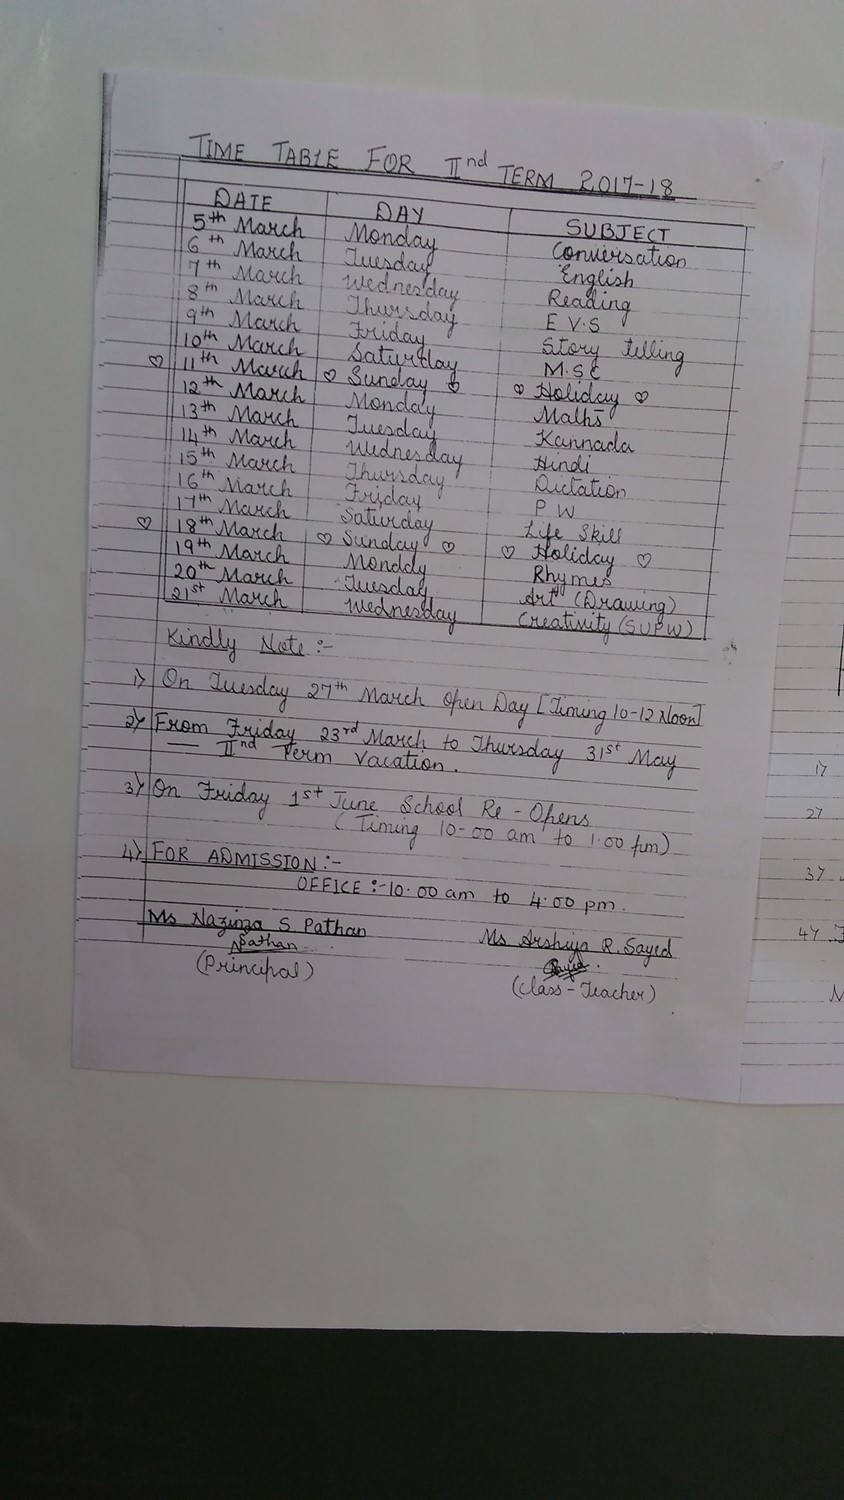 TIME TABLE FOR IInd TERM 2017-18
DATE DAY SUBJECT
5th March Monday Conversation
6th March Tuesday English
7th March Wednesday Reading
8th March Thursday E V.S
9th March Friday Story telling
10th March Saturday M.SC
♡ 11th March ♡ Sunday ♡ ♡ Holiday ♡
12th March Monday Maths
13th March Tuesday Kannada
14th March Wednesday Hindi
15th March Thursday Dictation
16th March Friday P W
17th March Saturday Life Skill
♡ 18th March ♡ Sunday ♡ ♡ Holiday ♡
19th March Monday Rhymes
20th March Tuesday Art (Drawing)
21st March Wednesday Creativity (SUPW)
Kindly Note :-
1) On Tuesday 27th March Open Day [Timing 10-12 Noon]
2) From Friday 23rd March to Thursday 31st May
— IInd Term Vacation.
3) On Friday 1st June School Re-Opens
(Timing 10-00 am to 1.00 pm)
4) FOR ADMISSION :-
OFFICE :- 10.00 am to 4.00 pm.
Ms S. Pathan Ms R. Sayed
Pathan
(Principal) (Class-Teacher)
1)
2)
3)
4)